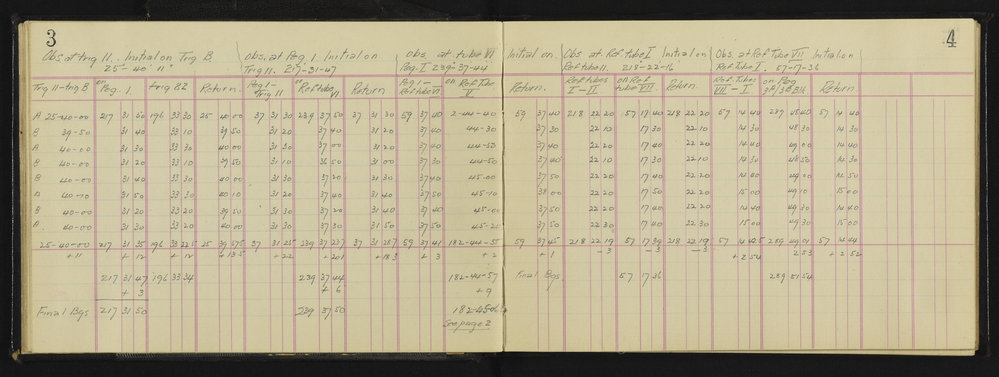 3
Obs. at trig 11. Initial on Trig B
25° 40' 11"
Obs. at Peg 1. Initial on
Trig 11. 217-31-47
Obs. at tube VI
Peg. I 239-37-44
Trig 11-trig B
Peg. 1.
trig B2
Return.
Peg 1-
Trig 11
on Ref tube
VI
Return
Peg 1-
Ref tube VI
on Ref. Tube
V
A 25-40-00 217 31 50 196 33 30 25 40 00 37 31 30 239 37 50 37 31 30 59 37 40 2-44-40
B 39-50 31 40 33 10 39 50 31 20 37 40 31 20 37 40 44-30
A 40-00 31 30 33 30 40 00 31 30 37 00 31 20 37 40 44-50
B 40-00 31 20 33 10 39 50 31 10 36 50 31 00 37 30 44-50
B 40-00 31 40 33 30 40 00 31 30 37 20 31 30 37 40 45-00
A 40-10 31 50 33 30 40 10 31 20 37 40 31 40 37 50 45-10
B 40-00 31 20 33 20 39 50 31 20 37 20 31 40 37 40 45-00
A 40-00 31 30 33 20 40 00 31 30 37 30 31 50 37 50 45-20
25-40-00 217 31 35 196 33 22.5 25 39 57.5 37 31 25 239 37 23 37 31 28 59 37 41 182-44-55
+11 + 12 + 12 + 13.5 + 22 + 201 + 183 + 3 +2
217 31 47 196 33 34 239 37 44 182-44-57
+ 3 + 6 +9
Final Bgs 217 31 50 239 37 50 182-45-06
See page 2
4
Initial on
Obs. at Ref tube I Initial on
Ref. tube II. 218-22-16
Obs. at Ref Tube VII Initial on
Ref. Tube I. 57-17-36
Return.
Ref tubes
I-II
on Ref
tube VII
Return.
Ref. Tubes
VII - I
on Peg
Return
59 37 40 218 22 20 57 17 40 218 22 20 57 14 40 239 48 40 57 14 40
37 30 22 10 17 30 22 10 14 30 48 30 14 30
37 40 22 20 17 40 22 20 14 40 49 00 14 40
37 40 22 10 17 30 22 10 14 30 48 50 14 30
37 50 22 20 17 40 22 20 14 40 49 00 14 50
38 00 22 20 17 50 22 20 15 00 49 10 15 00
37 50 22 20 17 40 22 20 14 40 49 30 14 40
37 50 22 30 17 40 22 30 15 00 49 30 15 00
59 37 45 218 22 19 57 17 39 218 22 19 57 14 42.5 239 49 01 57 14 44
+ 1 - 3 - 3 - 3 + 2 54 2 53 + 2 52
Final Bgs. 57 17 36 239 51 54